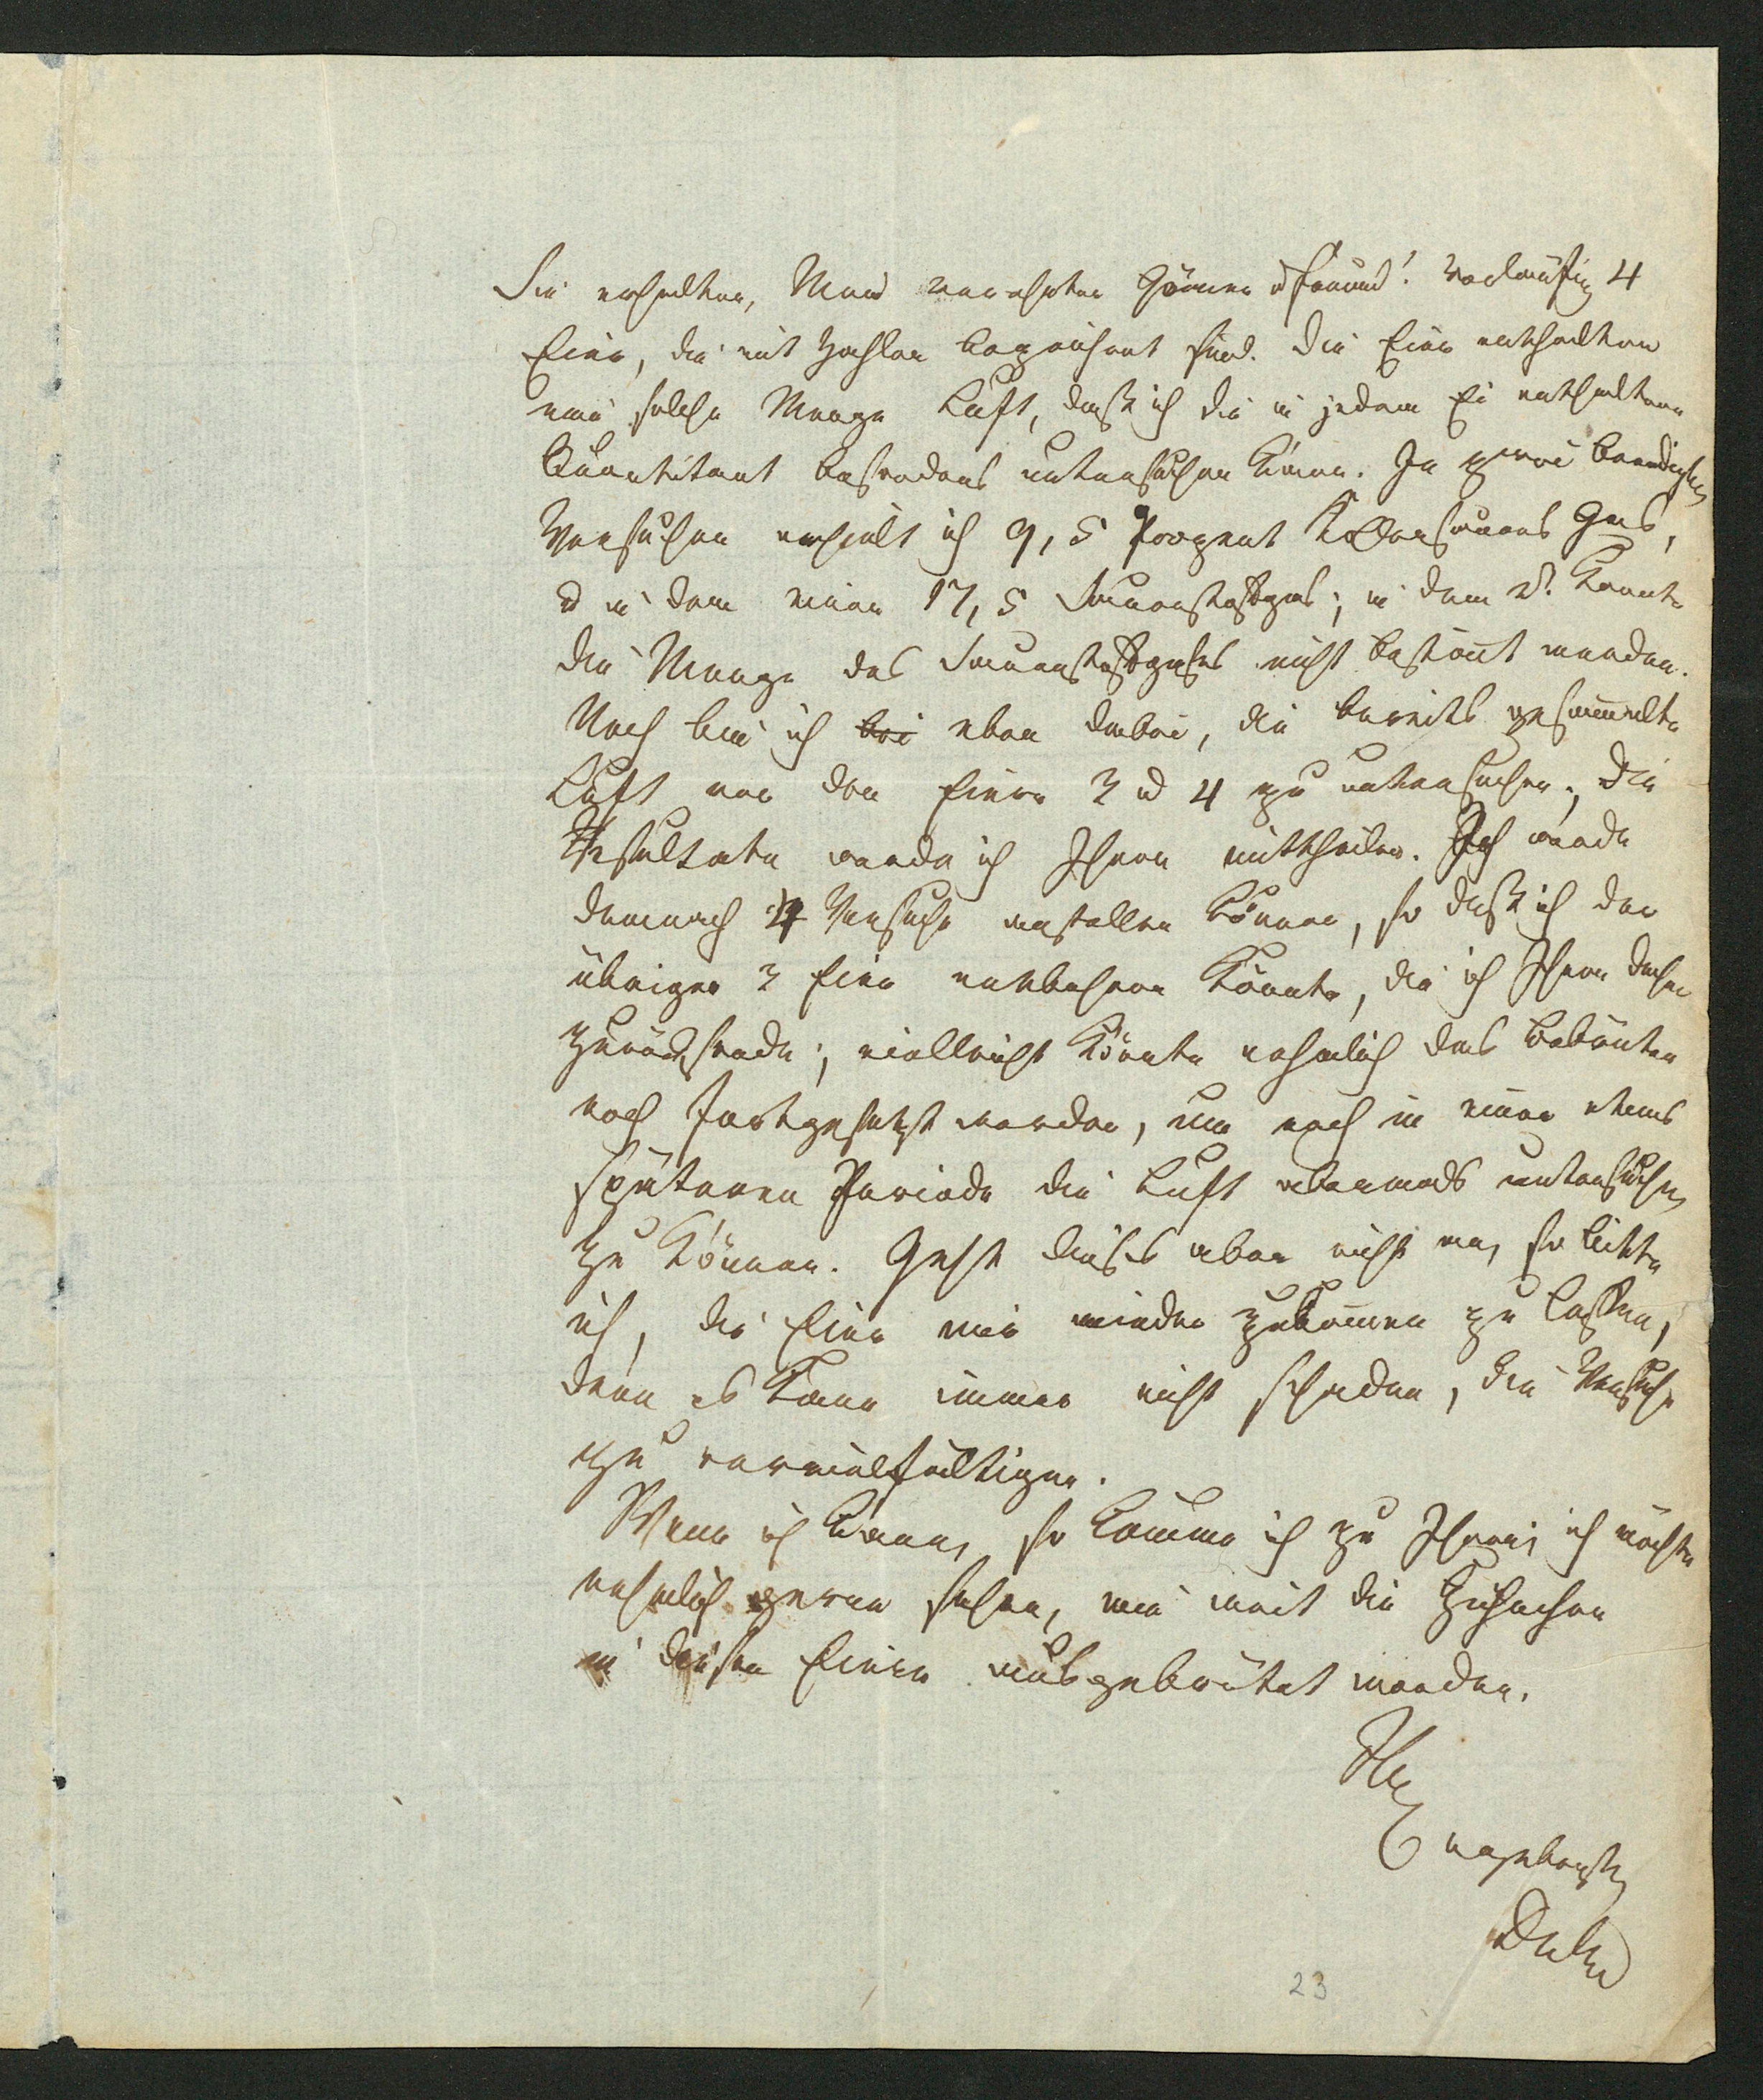 Sie erhalten, Mein verehrter Gönner u Freund! vorläufig 4
Eier, die mit Zahlen bezeichnet sind. Die Eier enthalten
eine solche Menge Luft, daß ich die in jedem Ei enthaltene
Quantitaet besonders untersuchen kann. In zwei beendigten
Versuchen erhielt ich 9,5 Prozent kohlensaures Gas,
u in dem einen 17,5 Sauerstoffgas; in dem 2t. konnte
die Menge des Sauerstoffgases nicht bestimt werden.
Noch bin ich bei eben dabei, die bereits gesammelte
Luft von den Eiern 3 u 4 zu untersuchen; die
Resultate werde ich Ihnen mittheilen. Ich werde
demnach 4 Versuche anstellen können, so daß ich der
übrigen 3 Eier entbehren könnte, die ich Ihnen daher
zurücksende; vielleicht könnte nehmlich das Bebrüten
noch fortgesetzt werden, um noch in einer etwas
späteren Periode die Luft abermals untersuchen
zu können. Geht dieses aber nicht an, so bitte
ich, die Eier mir wieder zukommen zu lassen,
denn es kann immer nicht schaden, die Versuche
zu vervielfältigen.
Wenn ich kann, so komme ich zu Ihnen; ich möchte
nehmlich gerne sehen, wie weit die Hühnchen
in diesen Eiern ausgebrütet worden.
Ihr
ergebenster
Dulk
23